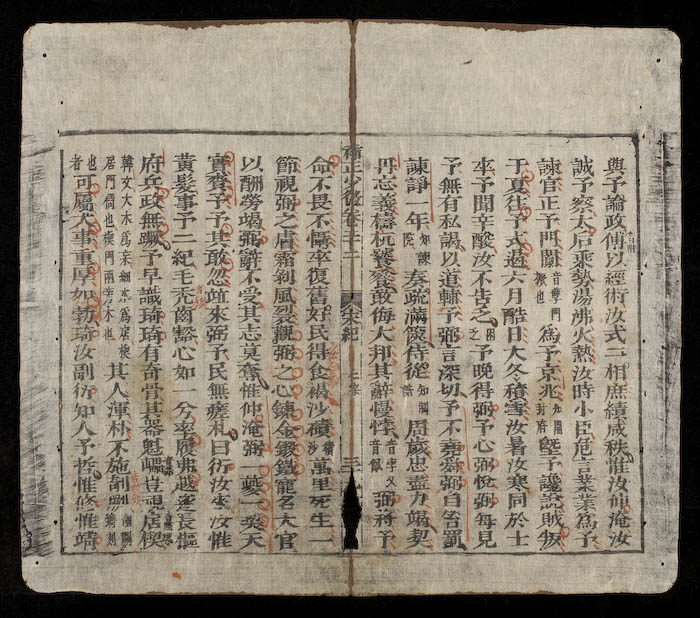 與予論政傅以經術汝式二相庶績咸秩惟汝仲淹汝
誠予察太后乘勢湯沸火熱汝時小臣危言業業為予
諫官正予門闑音孽門橛也為予京兆知開封府堲予讒說賊叛
于夏往予式遏六月酷日大冬積雪汝暑汝寒同於士
卒予聞辛酸汝不告乏予晚得弼予心弼悅弼每見
予無有私謁以道輔予弼言深切予不堯舜弼自笞罰
諫諍一年知諫院奏疏滿篋侍從周歲忠盡力竭契
丹忘義檮杌饕餮敢侮大邦其辭慢悖弼將予
命不畏不懾卒復舊好民得食褐沙磧萬里死生一
節視弼之膚霜剝風裂觀弼之心鍊金鍛鐵寵名大官
以酬勞竭弼辭不受其志莫奪惟仲淹弼一夔一契天
實賚予予其敢忽並來弼予民無瘥札曰衍汝來汝惟
黃髮事予二紀毛禿齒豁心如一分率履弗越遂長樞
府兵政無蹶予早識琦琦有奇骨其器魁櫑豈視居楔
其人渾朴不施剞劂
者也可屬大事重厚如勃琦汝副衍知人予哲惟修惟靖